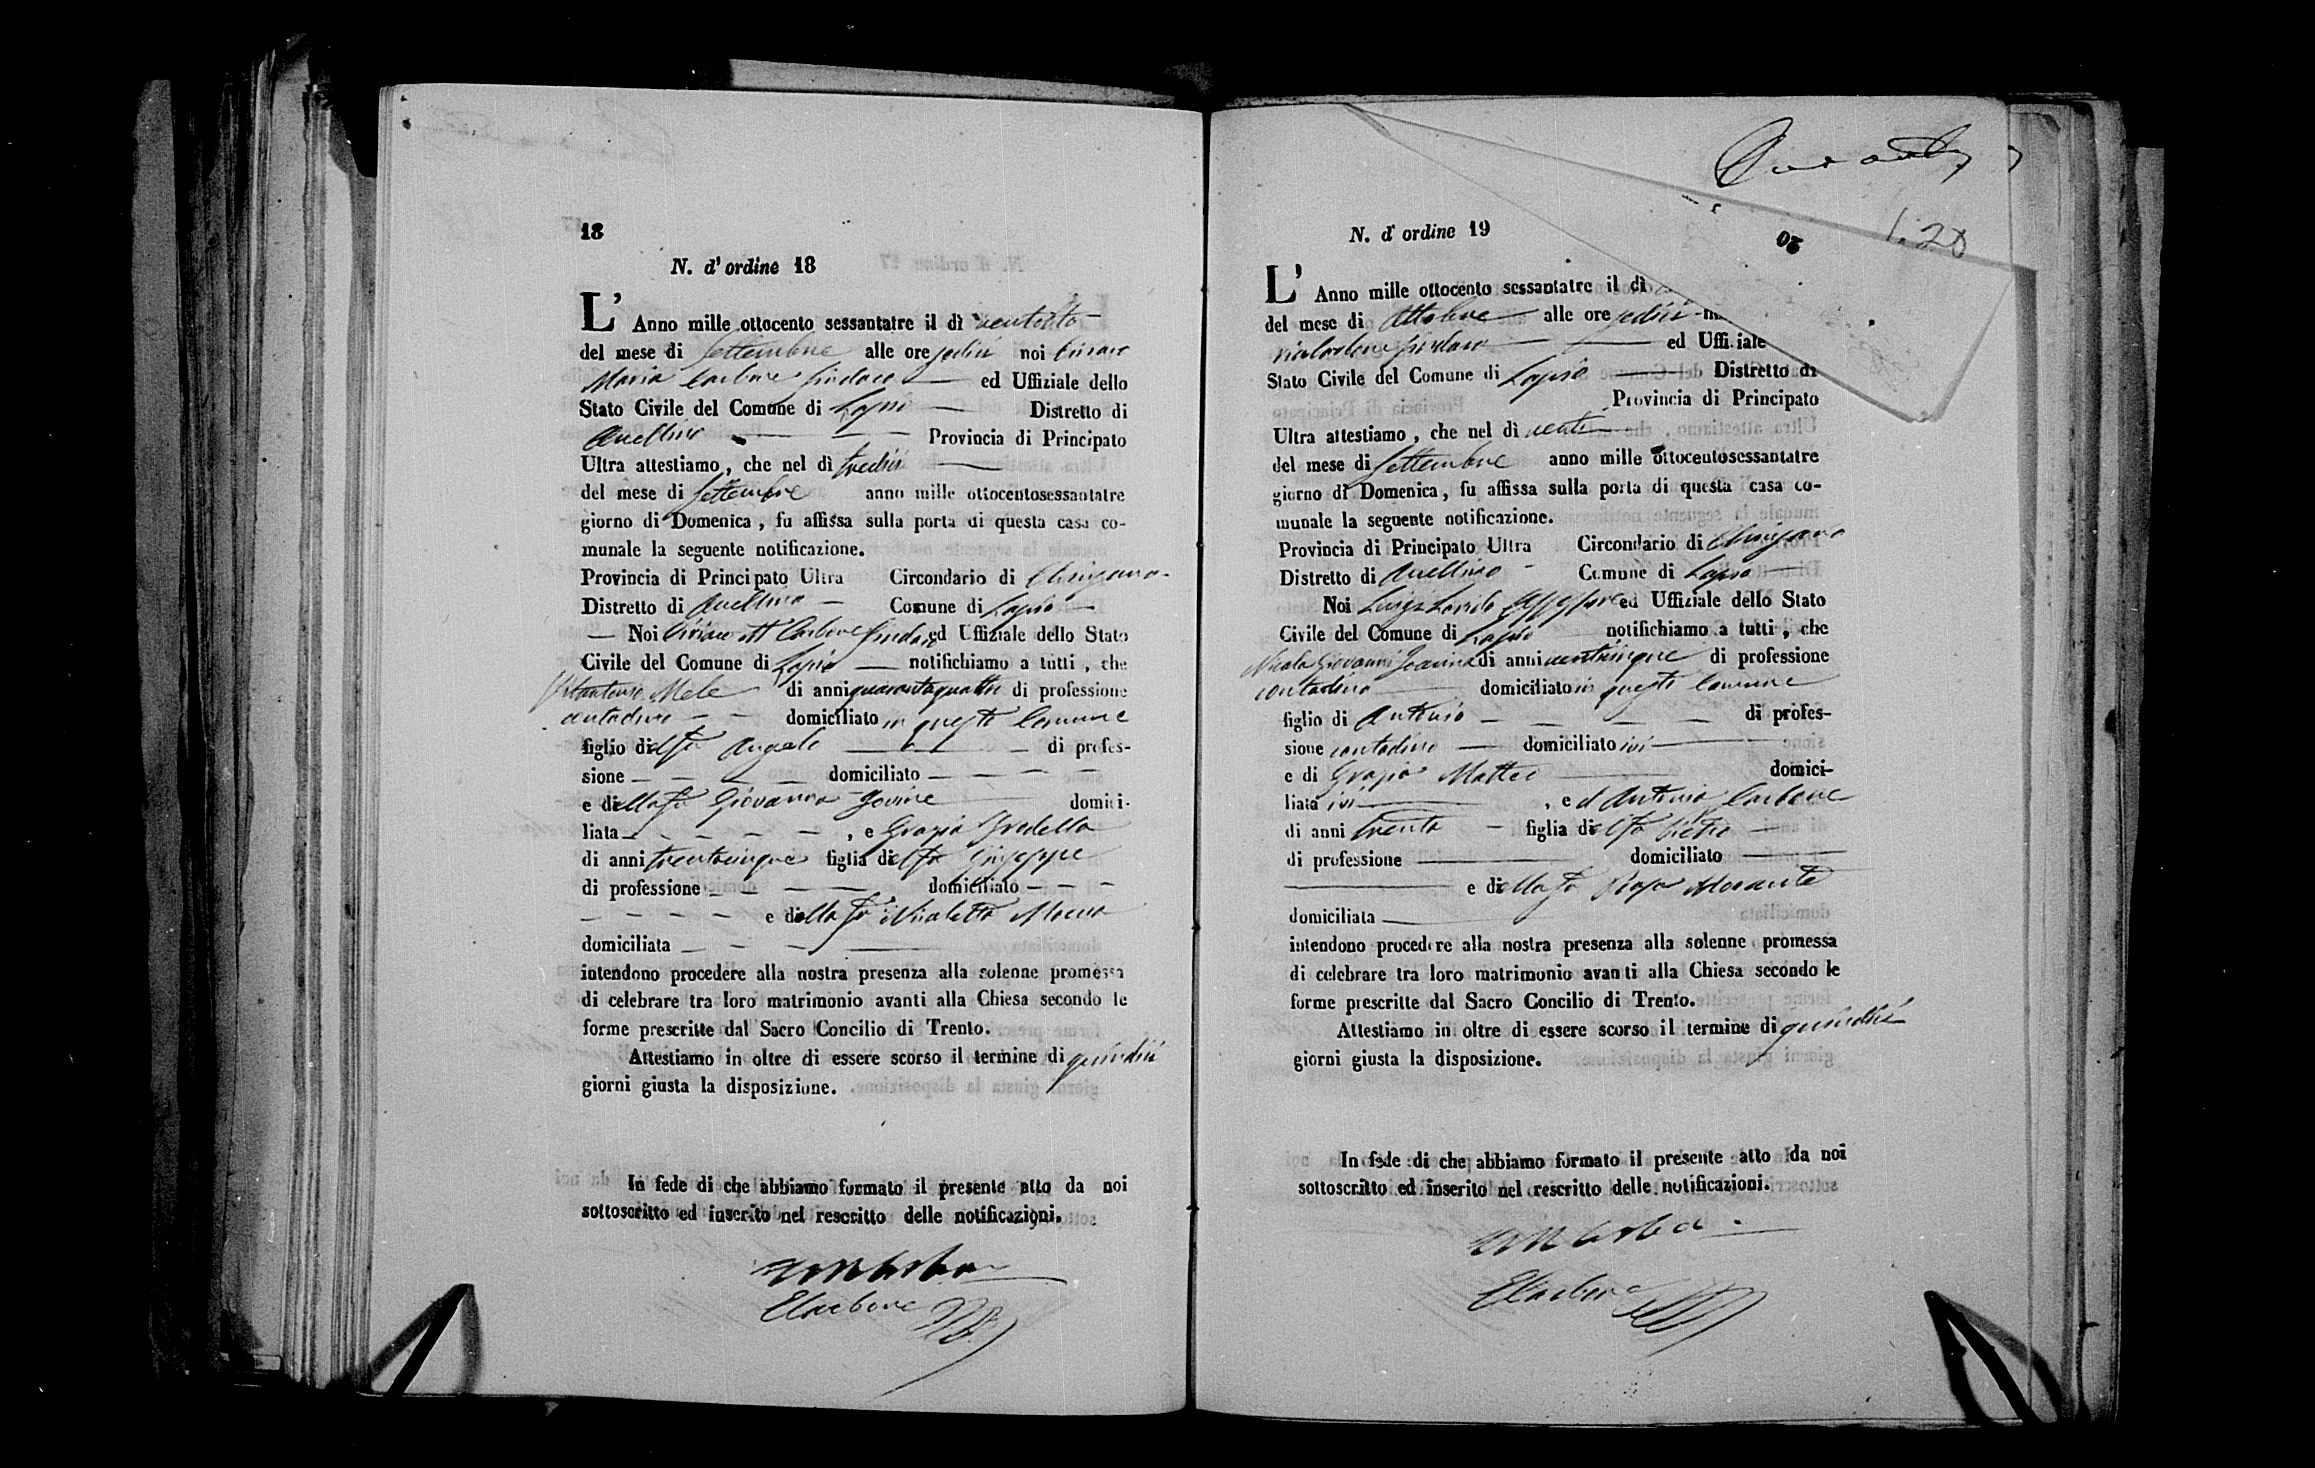 18
N. d' ordine 18
L' Anno mille ottocento sessantatre il dì ventotto
del mese di Settembre alle ore sedici noi Ciriaco
Maria Carbone Sindaco ed Uffiziale dello
Stato Civile del Comune di Lapio Distretto di
Avellino Provincia di Principato
Ultra attestiamo, che nel dì tredici
del mese di Settembre anno mille ottocentosessantatre
giorno di Domenica, fu affissa sulla porta di questa casa co-
munale la seguente notificazione.
Provincia di Principato Ultra Circondario di Chiusano
Distretto di Avellino Comune di Lapio
Noi Ciriaco M Carbone Sindaco ed Uffiziale dello Stato
Civile del Comune di Lapio notifichiamo a tutti, che
Vitantonio Mele di anni quarantaquattro di professione
contadino domiciliato in questo Comune
figlio del fu Angelo di profes-
sione domiciliato
e della fu Giovanna Jovine domici-
liata , e Grazia
di anni trentacinque figlia del fu Giuseppe
di professione domiciliato
e della fu Nicoletta
domiciliata
intendono procedere alla nostra presenza alla solenne promessa
di celebrare tra loro matrimonio avanti alla Chiesa secondo le
forme prescritte dal Sacro Concilio di Trento.
Attestiamo in oltre di essere scorso il termine di quindici
giorni giusta la disposizione.
In fede di che abbiamo formato il presente atto da noi
sottoscritto ed inserito nel rescritto delle notificazioni.
CMCarbone
N. d' ordine 19
20
L' Anno mille ottocento sessantatre il dì
del mese di Ottobre alle ore sedici
Carbone Sindaco ed Uffiziale
Stato Civile del Comune di Lapio Distretto di
Provincia di Principato
Ultra attestiamo, che nel dì venti
del mese di Settembre anno mille ottocentosessantatre
giorno di Domenica, fu affissa sulla porta di questa casa co-
munale la seguente notificazione.
Provincia di Principato Ultra Circondario di Chiusano
Distretto di Avellino Comune di Lapio
Noi Luigi Assessore ed Uffiziale dello Stato
Civile del Comune di Lapio notifichiamo a tutti, che
Nicola Giovanni di anni venticinque di professione
contadino domiciliato in questo Comune
figlio di Antonio di profes-
sione contadino domiciliato ivi
e di Grazia Matteo domici-
liata ivi , ed Antonia Carbone
di anni trenta figlia del fu Pietro
di professione domiciliato
e della fu Rosa Morante
domiciliata
intendono procedere alla nostra presenza alla solenne promessa
di celebrare tra loro matrimonio avanti alla Chiesa secondo le
forme prescritte dal Sacro Concilio di Trento.
Attestiamo in oltre di essere scorso il termine di quindici
giorni giusta la disposizione.
In fede di che abbiamo formato il presente atto da noi
sottoscritto ed inserito nel rescritto delle notificazioni.